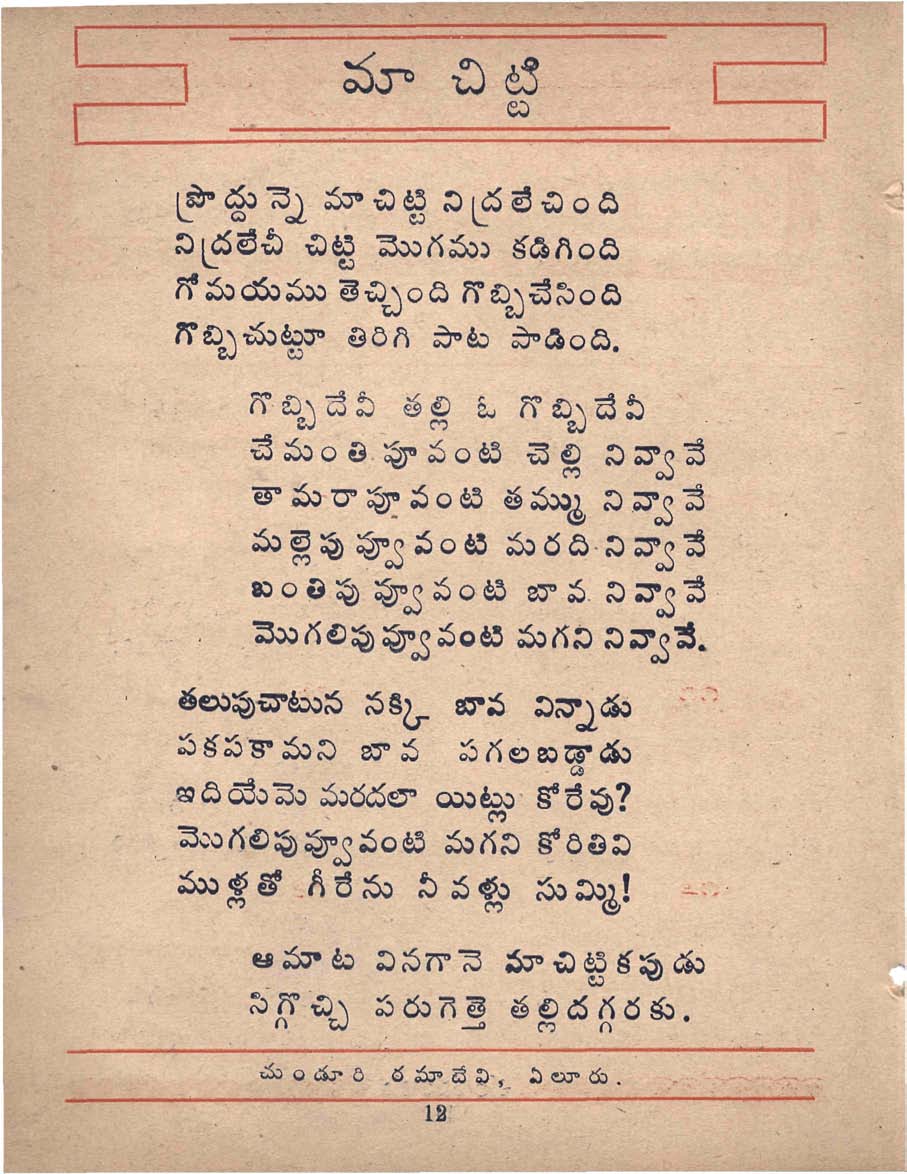 మా చిట్టి
ప్రొద్దున్నె మాచిట్టి నిద్రలేచింది
నిద్రలేచీ చిట్టి మొగము కడిగింది
గోమయము తెచ్చింది గొబ్బిచేసింది
గొబ్బిచుట్టూ తిరిగి పాట పాడింది.
గొబ్బిదేవీ తల్లి ఓ గొబ్బిదేవీ
చేమంతి పూవంటి చెల్లి నివ్వావే
తామరాపూవంటి తమ్ము నివ్వావే
మల్లెపువ్వూవంటి మరది నివ్వావే
బంతిపువ్వూవంటి బావ నివ్వావే
మొగలిపువ్వూవంటి మగని నివ్వావే.
తలుపుచాటున నక్కి బావ విన్నాడు
పకపకామని బావ పగలబడ్డాడు
ఇదియేమె మరదలా యిట్లు కోరేవు?
మొగలిపువ్వూవంటి మగని కోరితివి
ముళ్లతో గీరేను నీ వళ్లు సుమ్మి!
ఆమాట వినగానె మాచిట్టికపుడు
సిగ్గొచ్చి పరుగెత్తె తల్లిదగ్గరకు.
చుండూరి రమాదేవి, ఏలూరు.
12